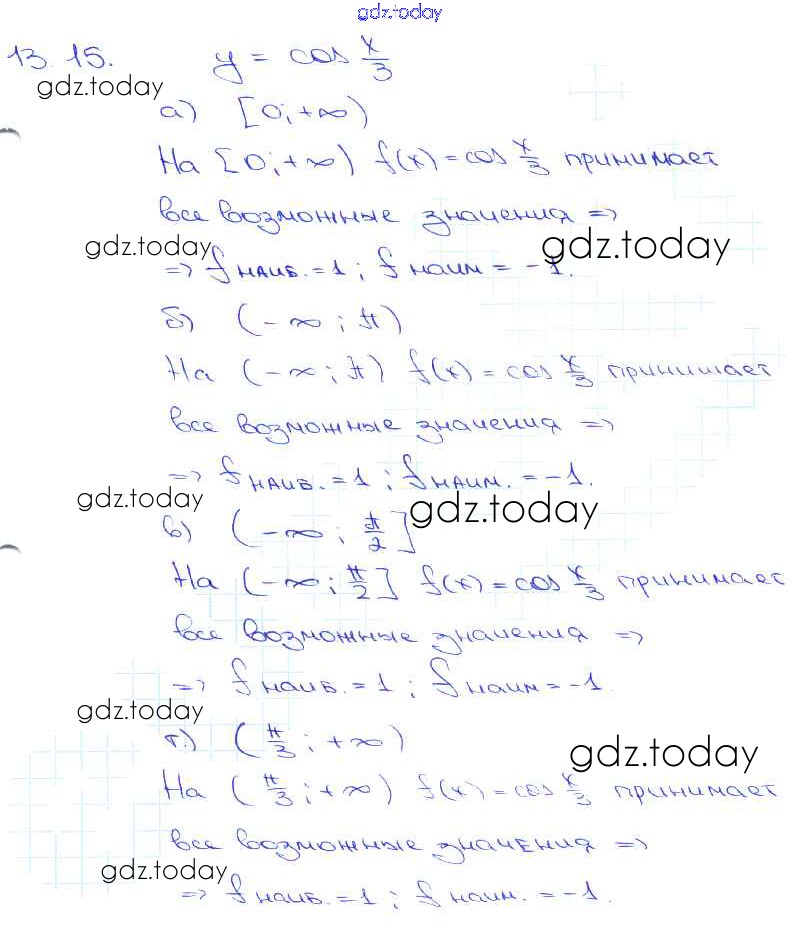 gdz.today
13.15. y = cos x/3
gdz.today
а) [0; +∞)
На [0; +∞) f(x) = cos x/3 принимает
все возможные значения =>
gdz.today gdz.today
=> f наиб. = 1 ; f наим = -1.
б) (-∞ ; π)
На (-∞ ; π) f(x) = cos x/3 принимает
все возможные значения =>
=> f наиб. = 1 ; f наим. = -1.
gdz.today gdz.today
в) (-∞ ; π/2]
На (-∞ ; π/2] f(x) = cos x/3 принимает
все возможные значения =>
=> f наиб. = 1 ; f наим = -1.
gdz.today
г.) (π/3 ; +∞)
gdz.today
На (π/3 ; +∞) f(x) = cos x/3 принимает
все возможные значения =>
gdz.today
=> f наиб. = 1 ; f наим. = -1.